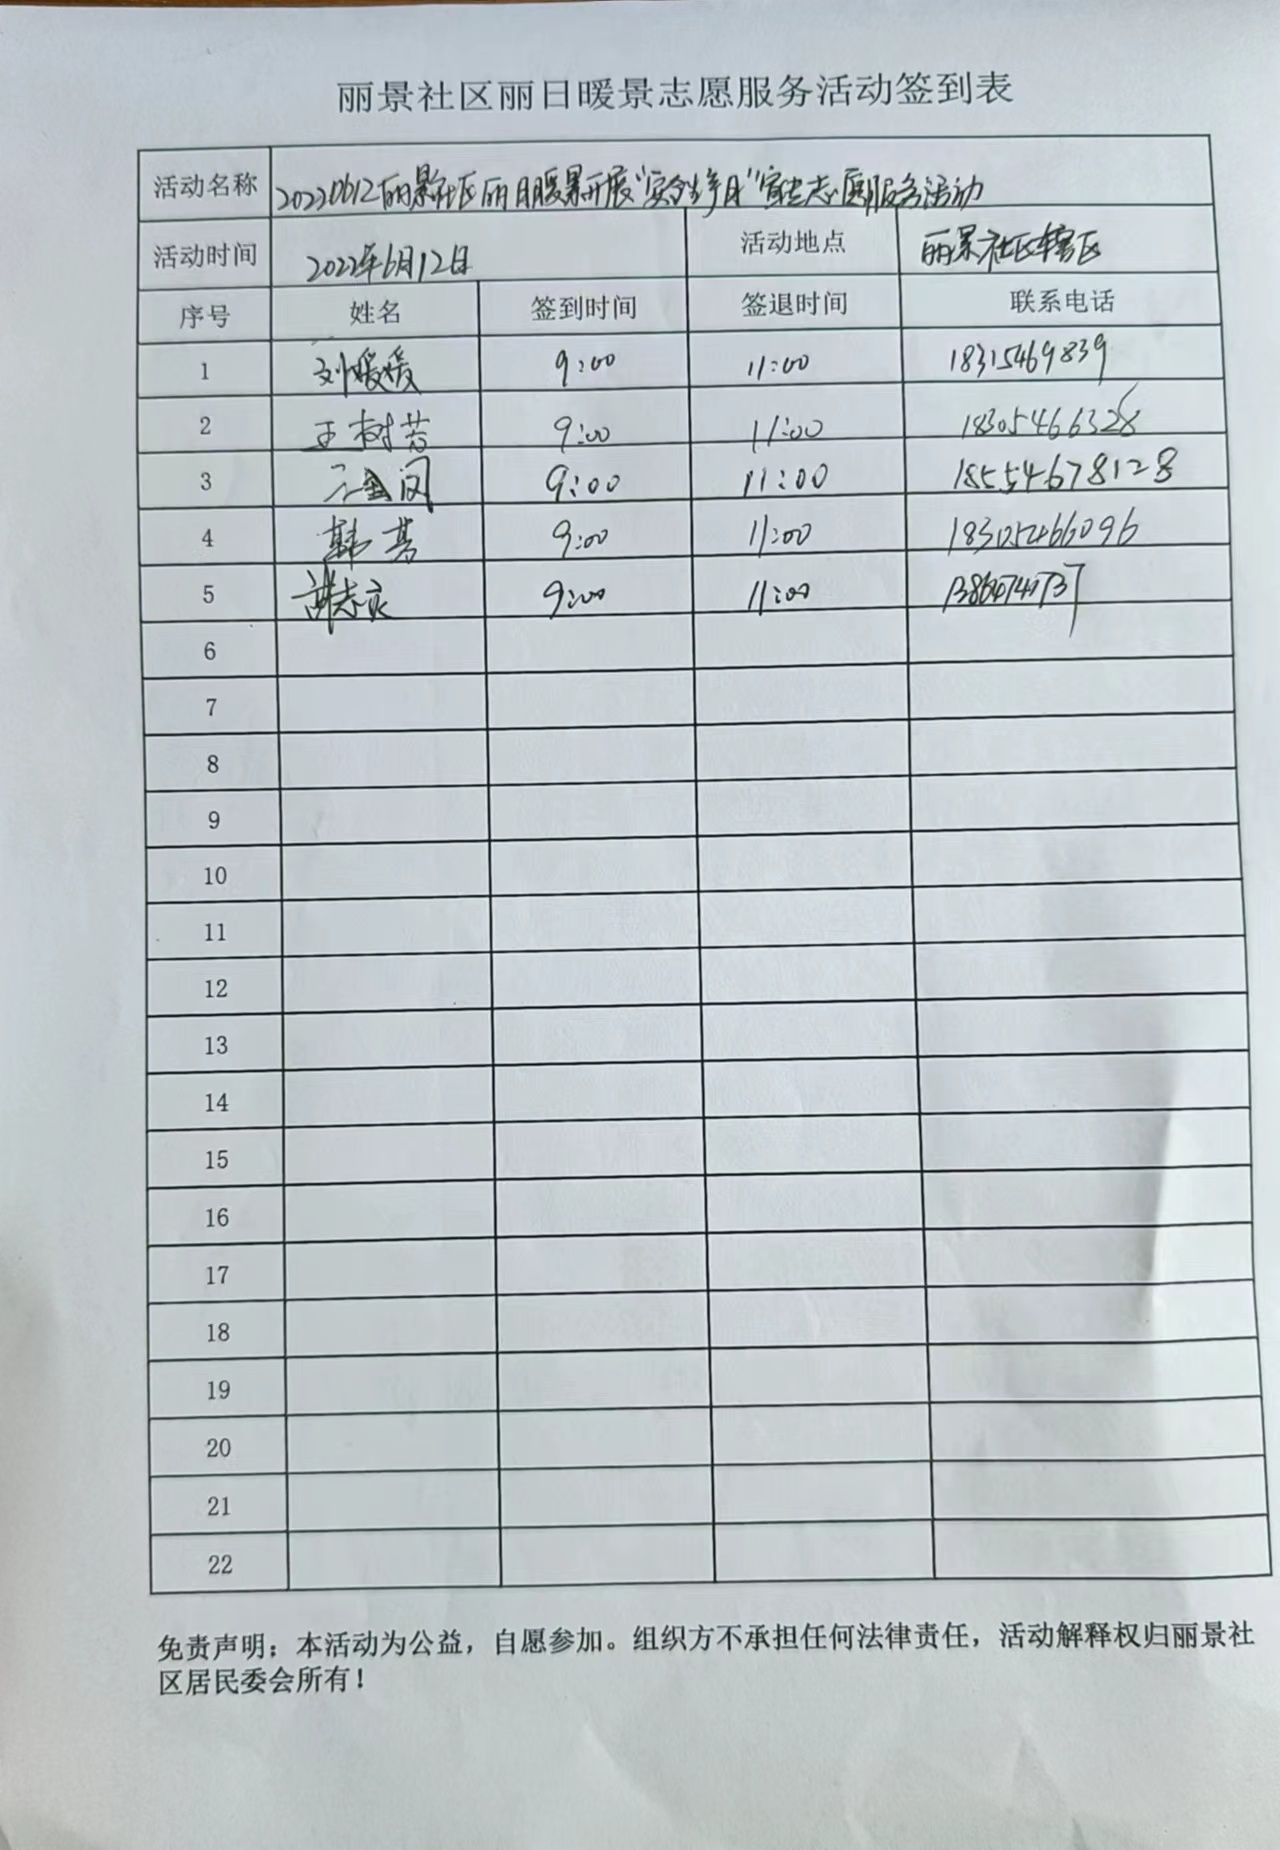 丽景社区丽日暖景志愿服务活动签到表
活动名称 20220612丽景社区丽日暖景开展"安全生产月"宣志愿服务活动
活动时间 2022年6月12日 活动地点 丽景社区辖区
序号 姓名 签到时间 签退时间 联系电话
1 刘媛媛 9:00 11:00 18315469839
2 王树芸 9:00 11:00 18305466328
3 9:00 11:00 18554678128
4 韩 9:00 11:00 18305466096
5 9:00 11:00
6
7
8
9
10
11
12
13
14
15
16
17
18
19
20
21
22
免责声明：本活动为公益，自愿参加。组织方不承担任何法律责任，活动解释权归丽景社
区居民委会所有！